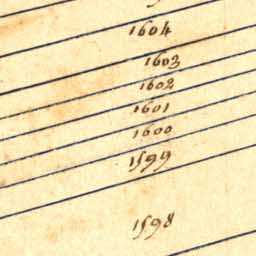 1604
1603
1602
1601
1600
1599
1598